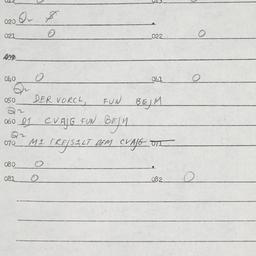 020 Q~
021 O 022 O
040 O 041 O
Q~
050 DER VORCL, FUN BEJM
Q~
060 DI CVAJG FUN BEJM
Q~
070 MI TREJSILT DEM CVAJG 071
080 O
081 O 082 O